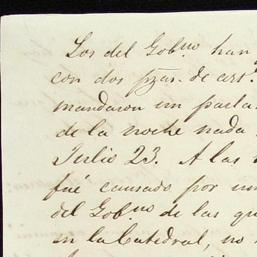 Los del Gob.no han
con dos pzas. de art.
mandaron un parla
de la noche nada
Julio 23. A las
fué causado por un
del Gob.no de las qu
en la Catedral, no